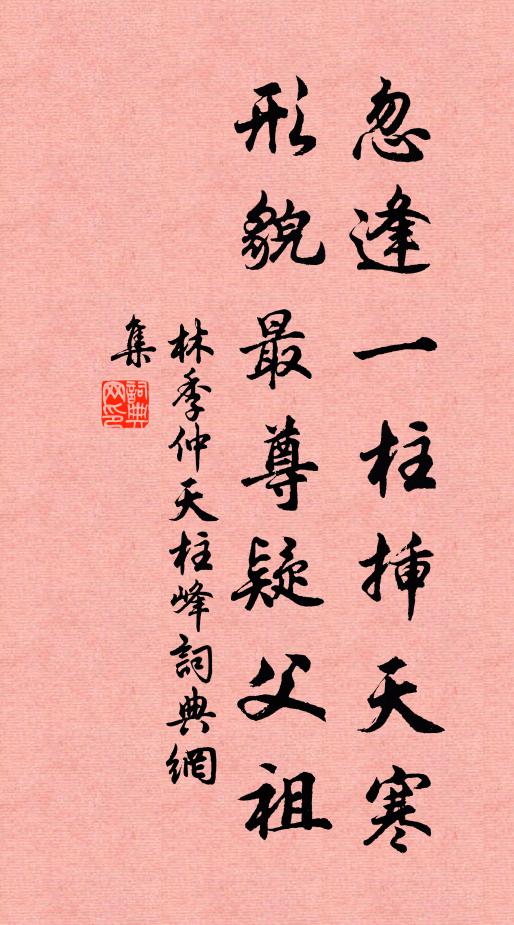 忽逢一柱揷天寒
形貌最尊疑父祖
林季仲天柱峰詞典網
集
詞典网印